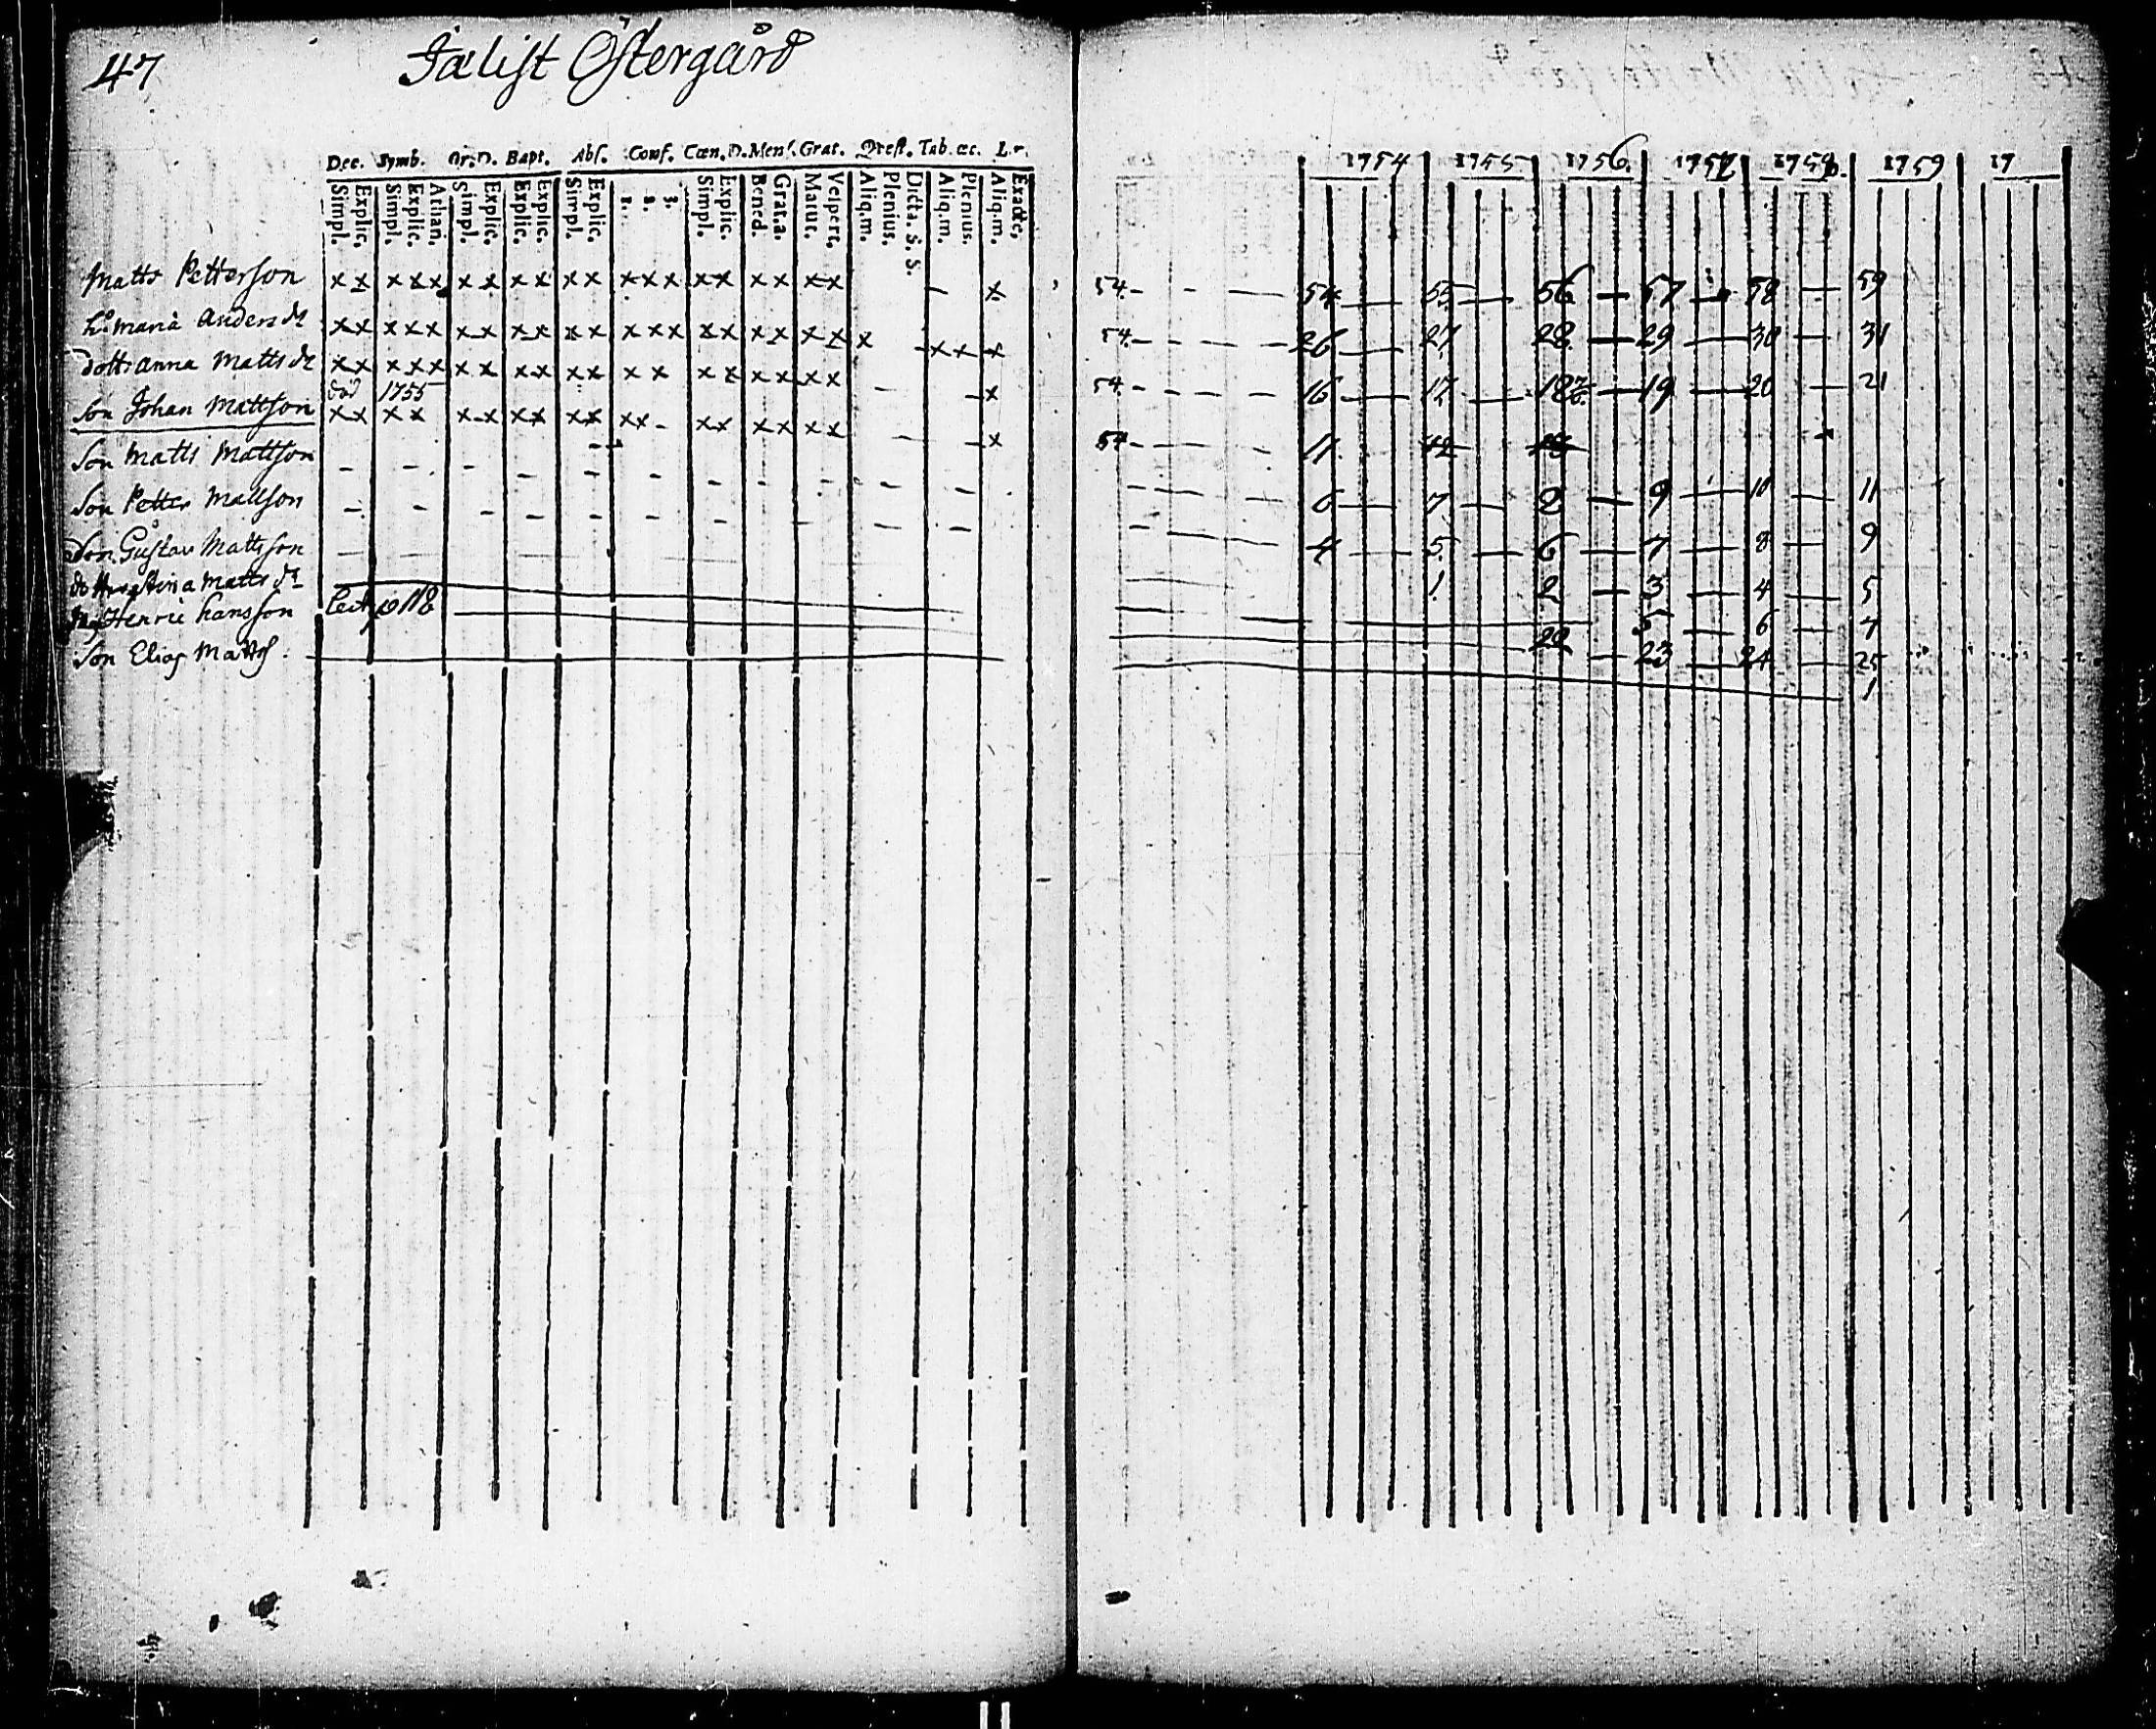 47
Jælist Östergård
Dec. Symb. Or. D. Bapt. Abs. Conf. Cœn. D. Mens. Grat. Qvest. Tab. œc. L.
Simpl. Explic. Simpl. Explic. Athan. Simpl. Explic. Explic. Explic. Simpl. Explic. 1. 2. 3. Simpl. Explic. Bened. Grat. a. Matut. Vespert. Aliq. m. Plenius. Dicta. S. S. Aliq. m. Plenius. Aliq. m. Exacte.
1754 1755 1756. 1757 1758. 1759 17
Matts Petterson x x x x x x x x x x x x x x x x x x x x — x 54. 54 55 56 57 58 59
h:o Maria Anders dr x x x x x x x x x x x x x x x x x x x x x x x x 54. 26 27 28 29 30 31
dott: Anna Matts dr x x x x x x x x x x x x x x x x x x x x x 54. 16 17 18 19 20 21
död 1755
Son Johan Mattson x x x x x x x x x x x x x x x x x x x 54. 11 12 13
Son Matts Mattson 6 7 8 9 10 11
Son Petter Mattson 4 5 6 7 8 9
Son Gustav Mattsson 1 2 3 4 5
Stina Matts dr 5 6 7
Henric hansson 22 23 24 25
Son Elias Matts. 1